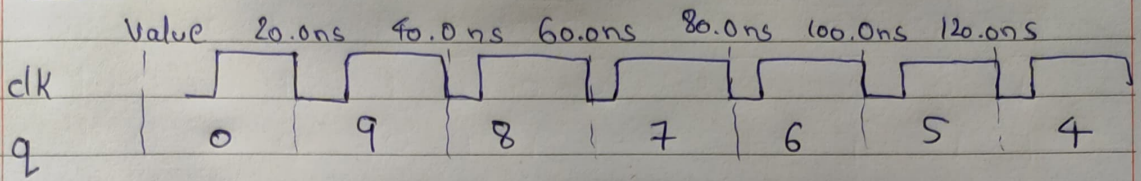 Value 20.0ns 40.0ns 60.0ns 80.0ns 100.0ns 120.0ns
clk
q 0 9 8 7 6 5 4